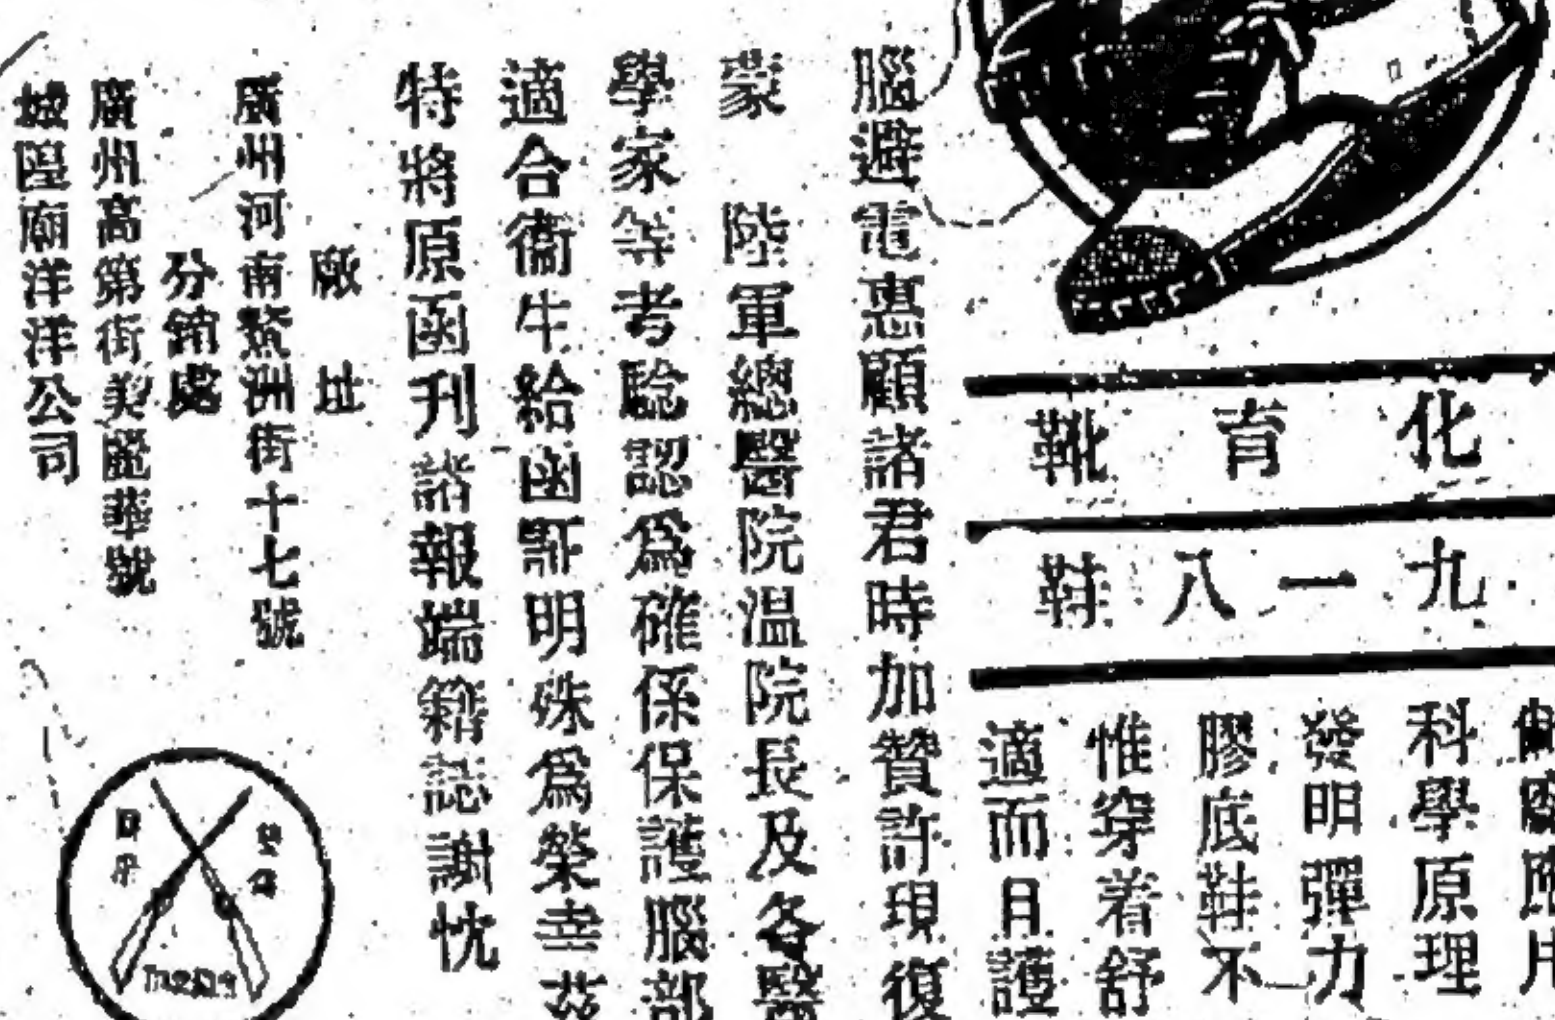 化育靴
九一八鞋
科學原理
發明彈力
膠底鞋不
惟穿着舒
適而且護
腦避電惠顧諸君時加贊許現復
蒙 陸軍總醫院温院長及各醫
學家等考驗認爲確係保護腦部
適合衞生給函証明殊爲榮幸茲
特將原函刊諸報端籍誌謝忱
廠址
廣州河南鰲洲街十七號
分銷處
廣州高第街美華號
城隍廟洋洋公司